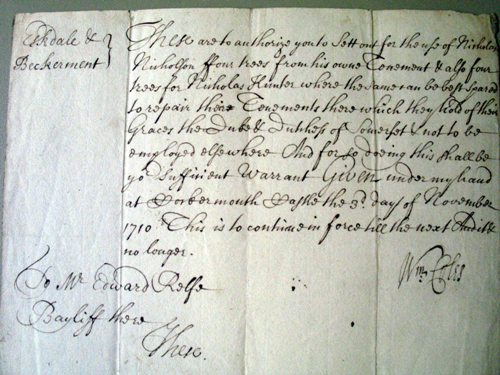 Eskdale &
Beckerment
These are to authorize you to Sett out for the use of Nicholas
Nicholson ffour trees from his owne Tenement & also four
trees for Nicholas Hunter where the same can be best Spared
to repair their Tenements there which they hold of their
Graces the Duke & Dutchess of Somerset & not to be
employed elsewhere And for so doeing this shall be
yor Sufficient Warrant Given under my hand
at Cockermouth Castle the 3d. day of November
1710 This is to continue in force till the next Audit &
no longer.
Wm
To Mr Edward Relfe
Bayliff there
These.